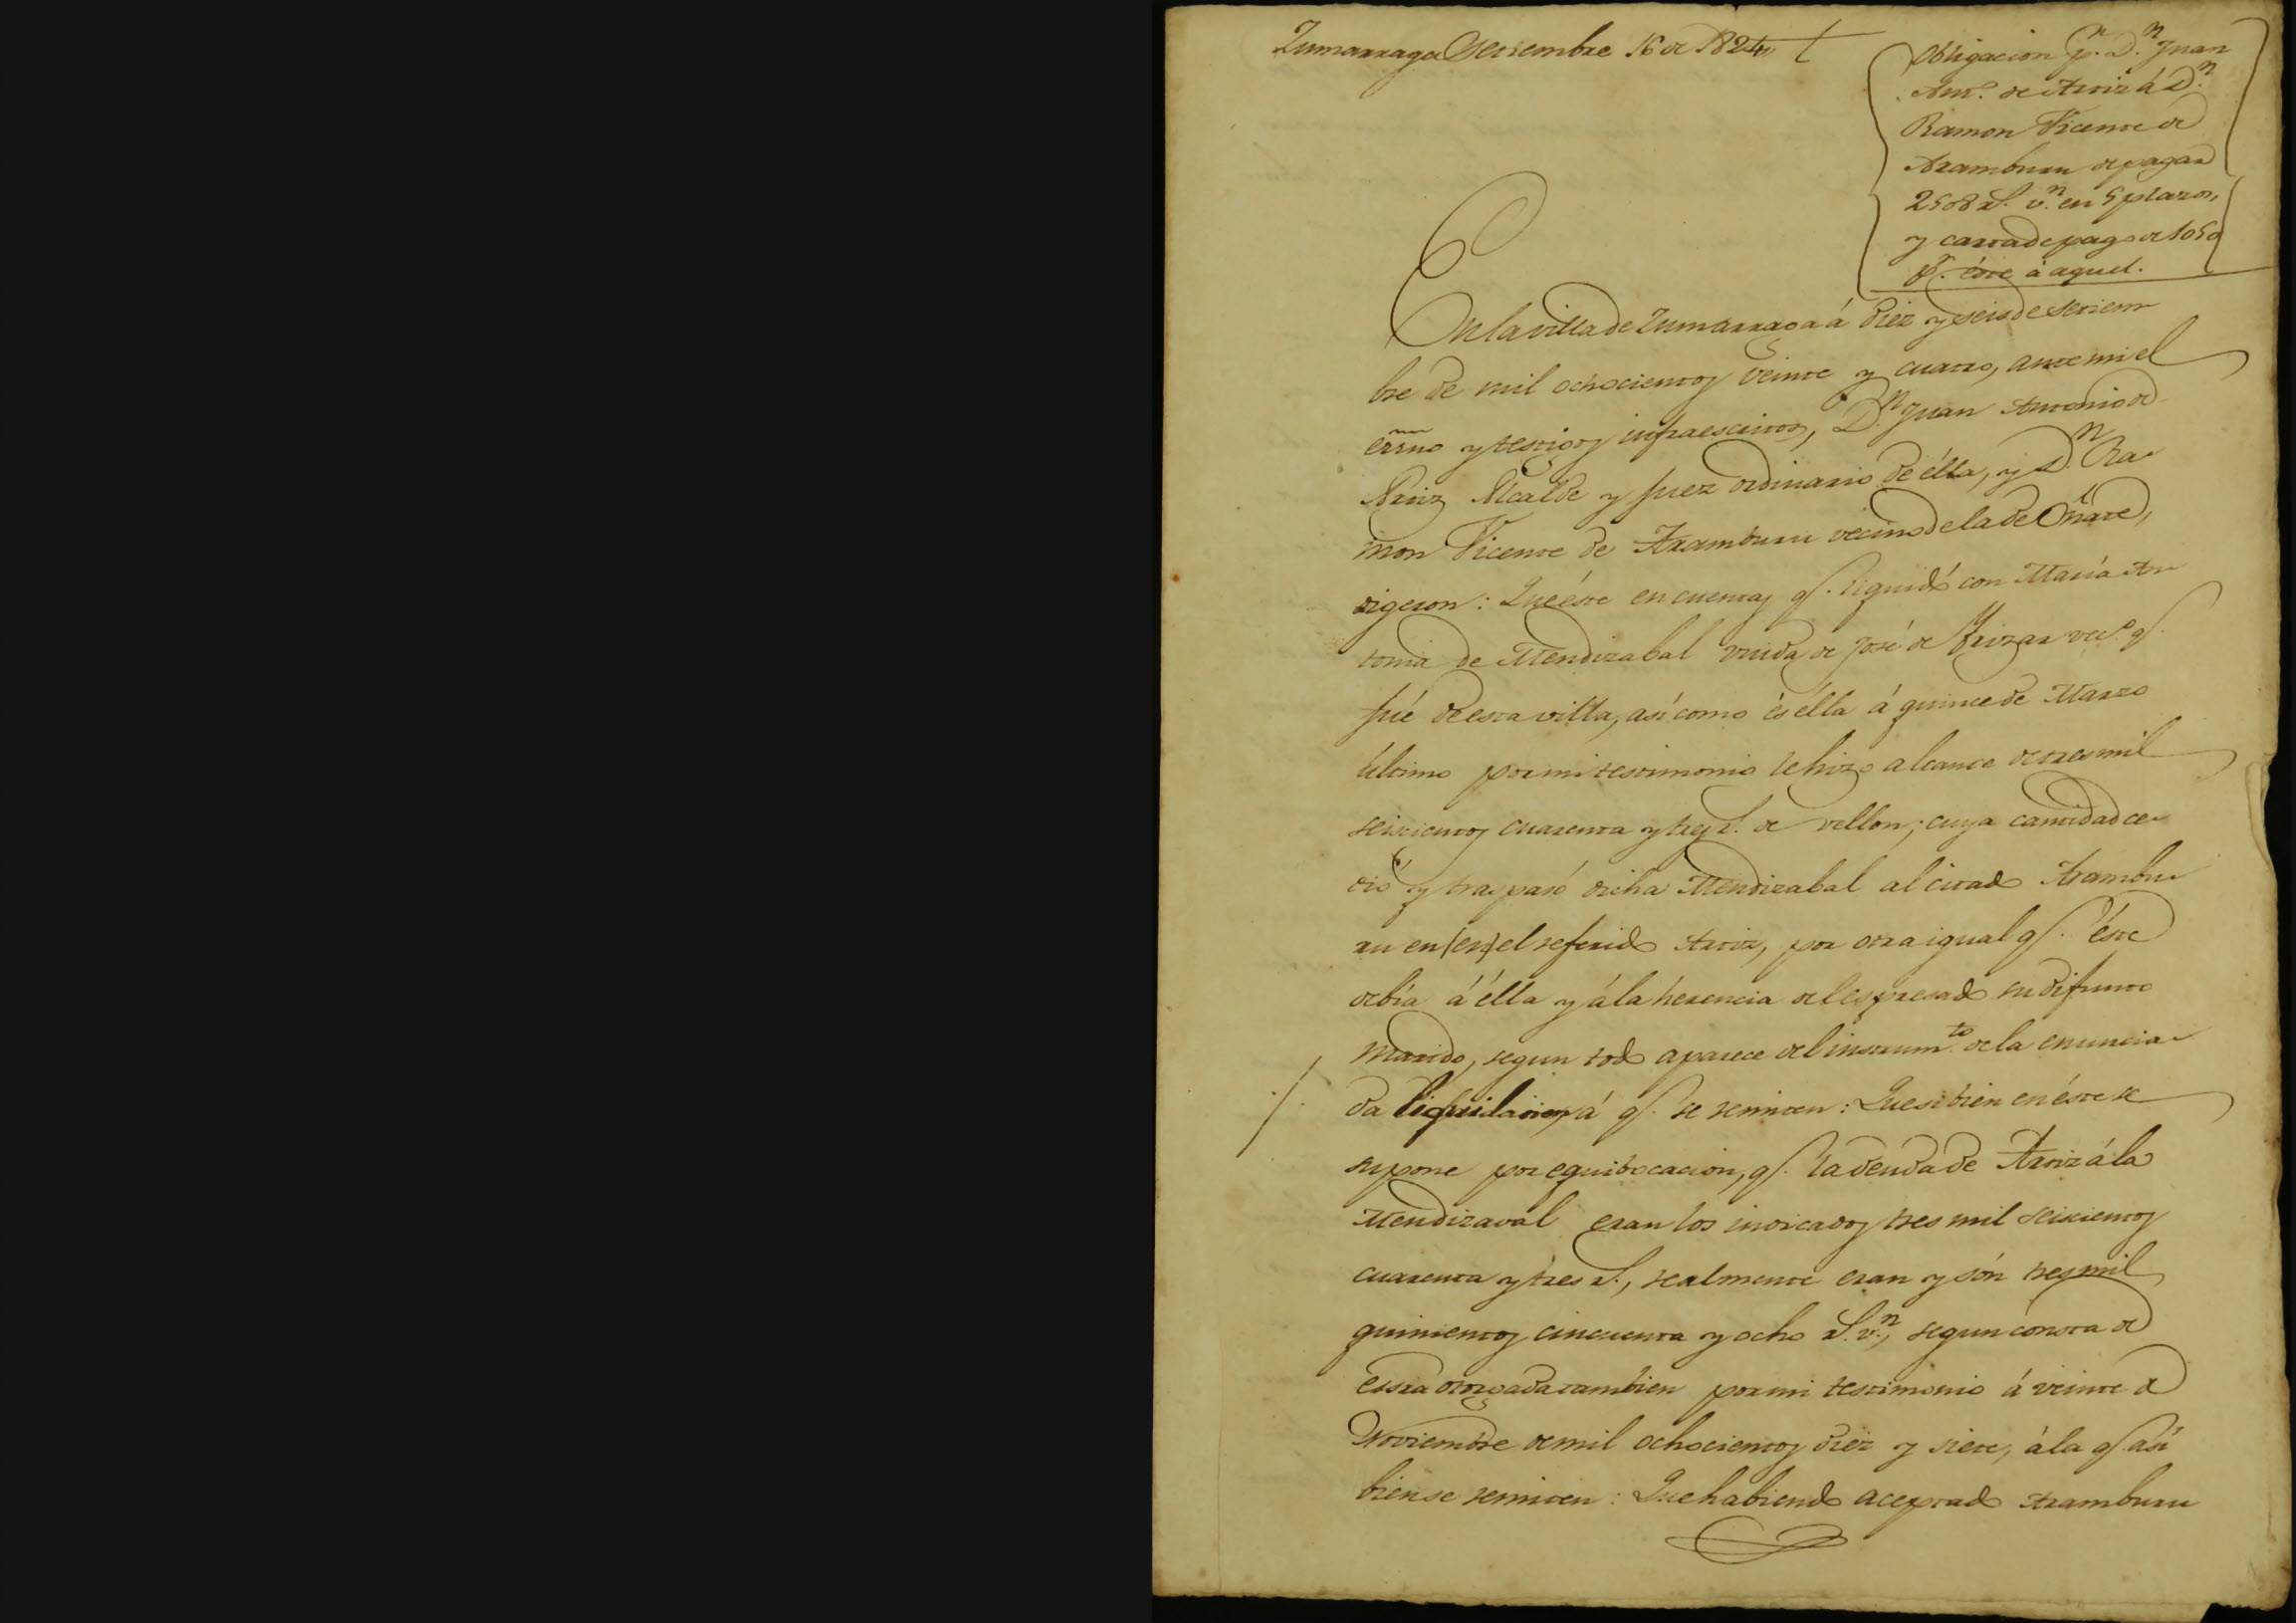 Zumarraga Setiembre 16 de 1824
Obligacion p.r D.n Juan
Ant.o de Arriz á D.n
Ramon Vicente de
Aramburu de pagar
2508 r.s v.n en 5 plazos,
y carta de pago de 1050
p.r éste á aquel.
En la villa de Zumarraga á diez y seis de setiem-
bre de mil ochocientos veinte y cuatro, ante mi el
essno y testigos infraescritos, D.n Juan Antonio de
Arriz Alcalde y Juez ordinario de élla, y D.n Ra-
mon Vicente de Aramburu vecino de la de Oñate,
digeron: Que éste en cuentas q.e liquidó con María An-
tonia de Mendizabal viuda de José de Yrizar vec.o q.e
fué de esta villa, así como és élla á quince de Marzo
último por mi testimonio le hizo alcance de tres mil
seiscientos cuarenta y tres r.s de vellon; cuya cantidad ce-
dió y traspasó dicha Mendizabal al citado Arambu-
ru en (en) el referido Arriz, por otra igual q.e éste
debía á élla y á la herencia del espresado su difunto
marido, segun todo aparece del instrum.to de la enuncia-
da liquidacion, á q.e se remiten: Que si bien en éste se
supone por equibocacion, q.e la deuda de Arriz á la
Mendizaval eran los indicados tres mil seiscientos
cuarenta y tres r.s, realmente eran y són tres mil
quinientos cincuenta y ocho r.s v.n, segun consta de
essra otorgada tambien por mi testimonio á veinte de
Noviembre de mil ochocientos diez y siete, á la q.e así
bien se remiten: Que habiendo aceptado Aramburu